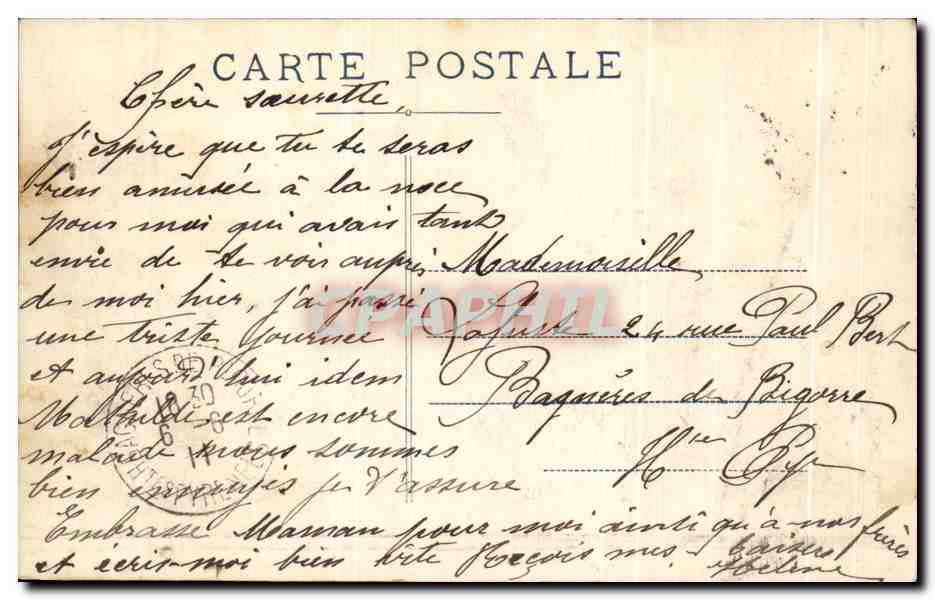 CARTE POSTALE
Chère sœurette,
J'espère que tu te seras
bien amusée à la noce
pour moi qui avais tant
envie de te voir auprès
de moi hier, j'ai passé
une triste journée
et aujourd'hui idem
Mathilde est encore
malade nous sommes
bien ennuyés je t'assure
Embrasse Maman pour moi ainsi qu'à nos frères
et écris-moi bien vite Reçois mes baisers
Mademoiselle
24 rue Paul Bert
Bagnères de Bigorre
Htes Pyr
CPAPHIL